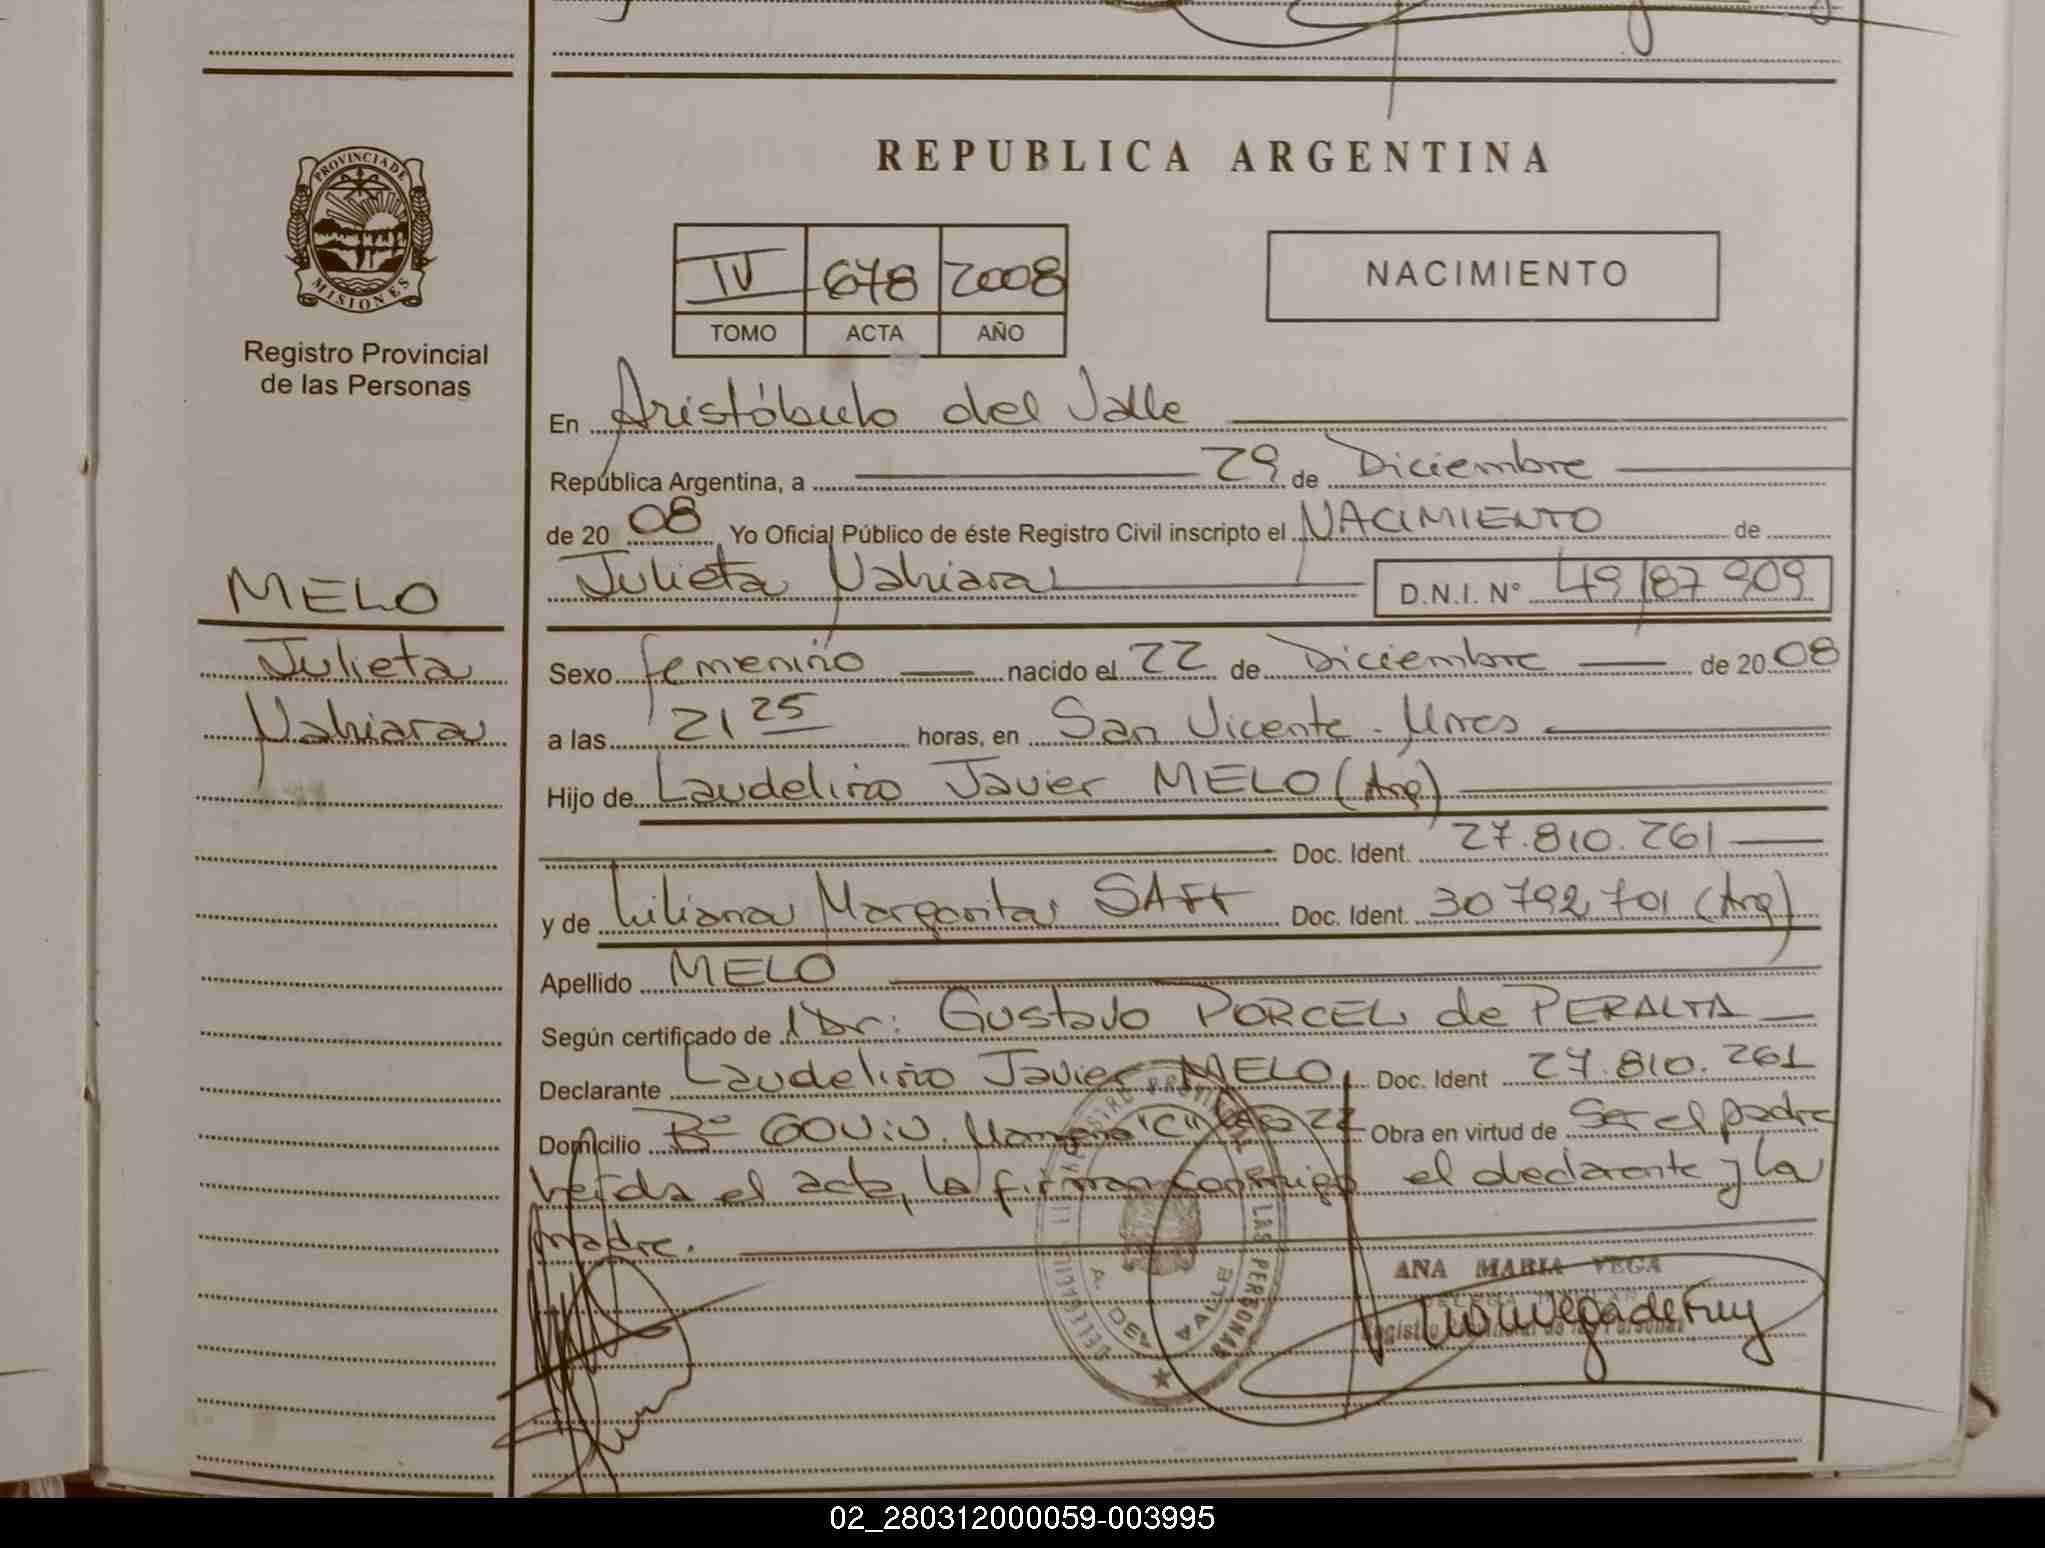 REPUBLICA ARGENTINA
PROVINCIA DE
MISIONES
Registro Provincial
de las Personas
IV 678 2008
TOMO ACTA AÑO
NACIMIENTO
En Aristóbulo del Valle
República Argentina, a 29 de Diciembre
de 20 08 Yo Oficial Público de éste Registro Civil inscripto el NACIMIENTO de
Julieta Nahiara D.N.I. Nº 49187909
MELO
Julieta
Nahiara
Sexo femenino nacido el 22 de Diciembre de 20 08
a las 21 25 horas, en San Vicente - Mnes
Hijo de Laudelino Javier MELO (Arg)
Doc. Ident. 27.810.261
y de Liliana Margarita Doc. Ident. 30792701 (Arg)
Apellido MELO
Según certificado de Dr: Gustavo PORCEL de PERALTA
Declarante Laudelino Javier MELO Doc. Ident 27.810.261
Domicilio Bº 60 Viv. Manzana "C" 22 Obra en virtud de Ser el padre
Leída el acta, la firman conmigo el declarante y la
madre.
ANA MARIA VEGA
02_280312000059-003995